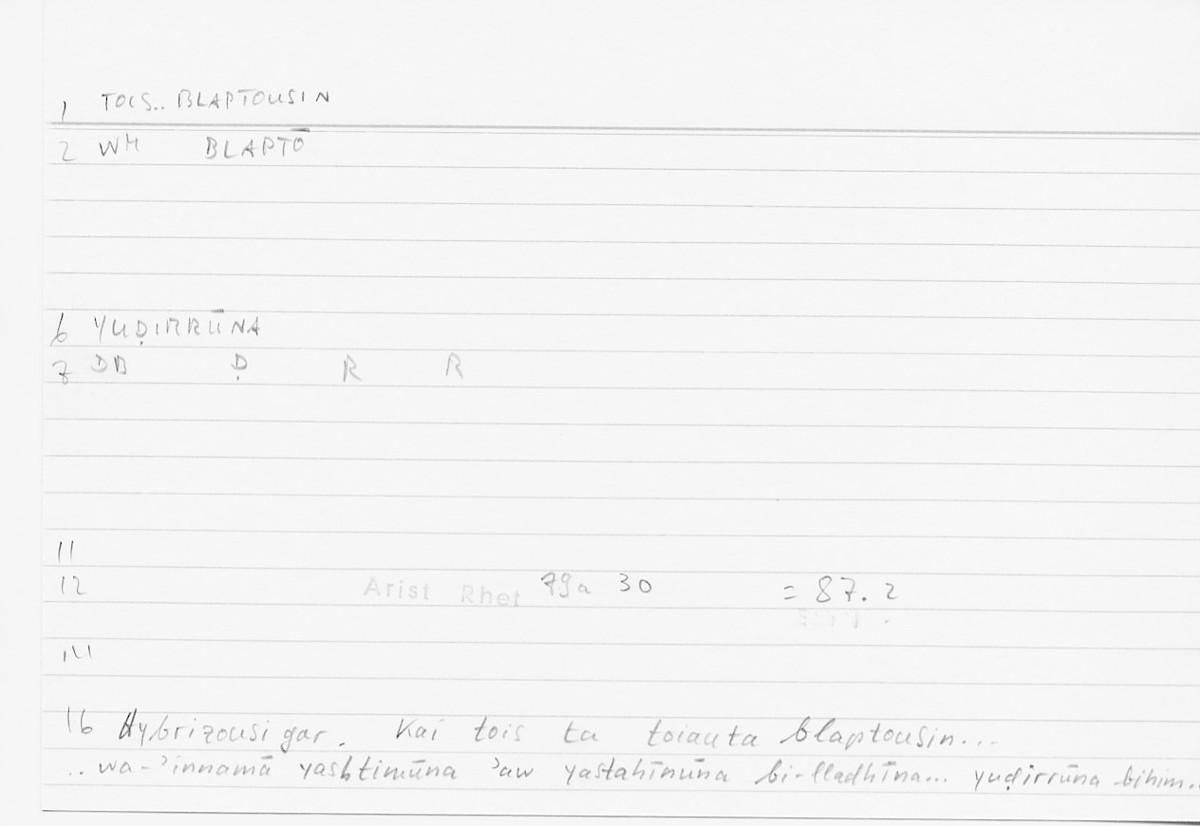 1 TOIS.. BLAPTOUSIN
2 WH BLAPTŌ
6 YUḌIRRŪNA
7 DB Ḍ R R
11
12 Arist Rhet 79a 30 = 87.2
14
16 Hybrizousi gar. Kai tois ta toiauta blaptousin...
.. wa-ʾinnamā yashtimūna ʾaw yastahīnūna bi-lladhīna... yuḍirrūna bihim..